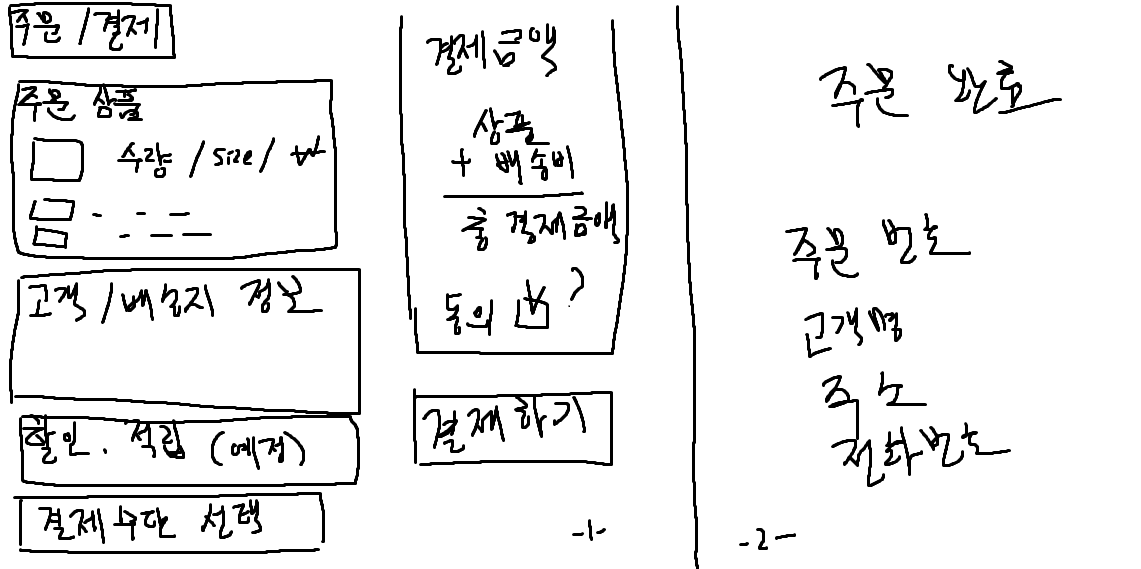 주문 / 결제
주문 상품
수량 / size / ₩
고객 / 배송지 정보
할인. 적립 (예정)
결제수단 선택
결제금액
상품
+ 배송비
총 결제금액
동의 ?
결제하기
-1-
주문 완료
주문 번호
고객명
주소
전화번호
-2-